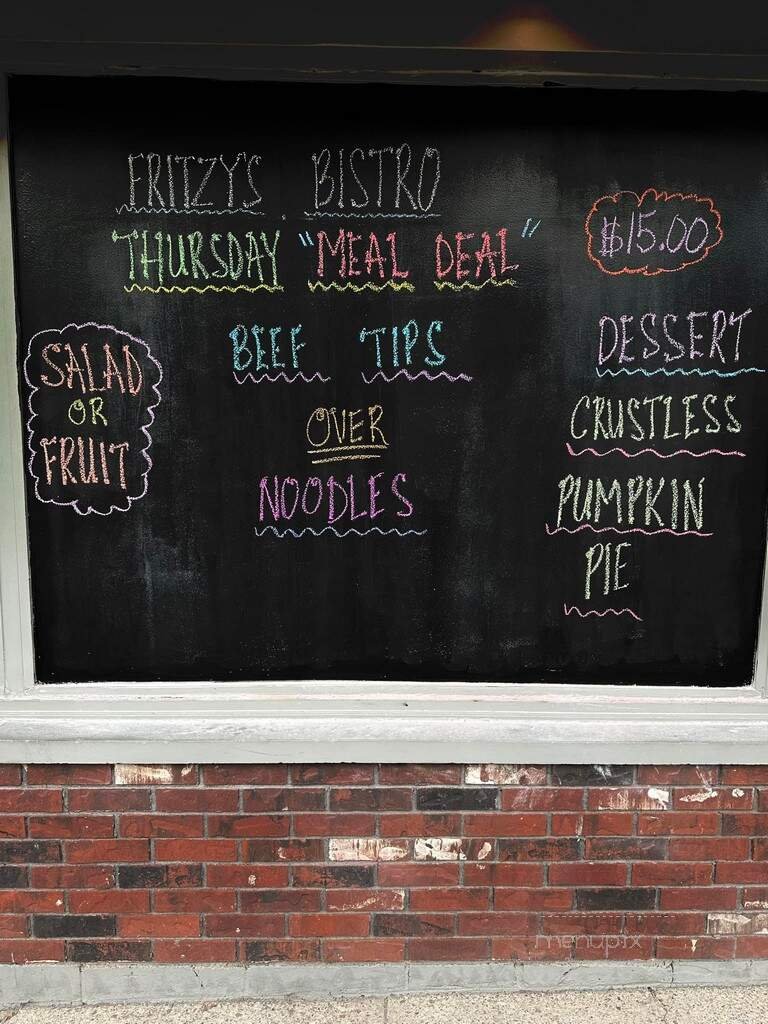 FRITZY'S BISTRO
THURSDAY "MEAL DEAL"
$15.00
SALAD
OR
FRUIT
BEEF TIPS
OVER
NOODLES
DESSERT
CRUSTLESS
PUMPKIN
PIE
menupix